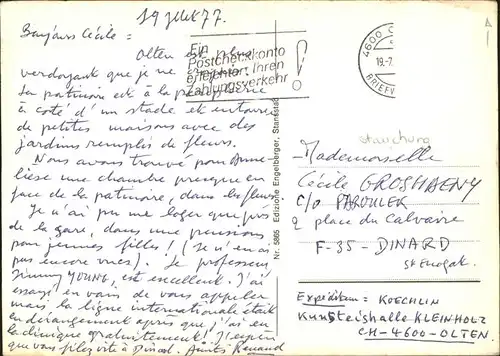 19 juillet 77.
Bonjour Cécile =
Olten est plus
verdoyant que je ne
Sa patinoire est à la périphérie
à côté d'un stade et entourée
de petites maisons avec des
jardins remplis de fleurs.
Nous avons trouvé pour Anne-
liese une chambre presque en
face de la patinoire, dans les fleurs.
Je n'ai pu me loger que près
de la gare, dans une pension
pour jeunes filles! (Je n'en ai
pas encore vues). Le professeur,
Jimmy YOUNG, est excellent. J'ai
essayé en vain de vous appeler
mais la ligne internationale était
en dérangement après que j'ai eu
la clinique gratuitement! J'espère
que vous filez vite à Dinard. Renaud
Ein
Postcheckkonto
erleichtert Ihren
Zahlungsverkehr
!
4600
19.-7.
BRIEFV
Nr. 5865 Edizione Engelberger, Stansstad
Mademoiselle
Cécile GROSHAENY
c/o PAROULEK
2 place du Calvaire
F-35 - DINARD
St Enogat.
Expéditeur = KOECHLIN
Kunsteishalle KLEINHOLZ
CH-4600-OLTEN